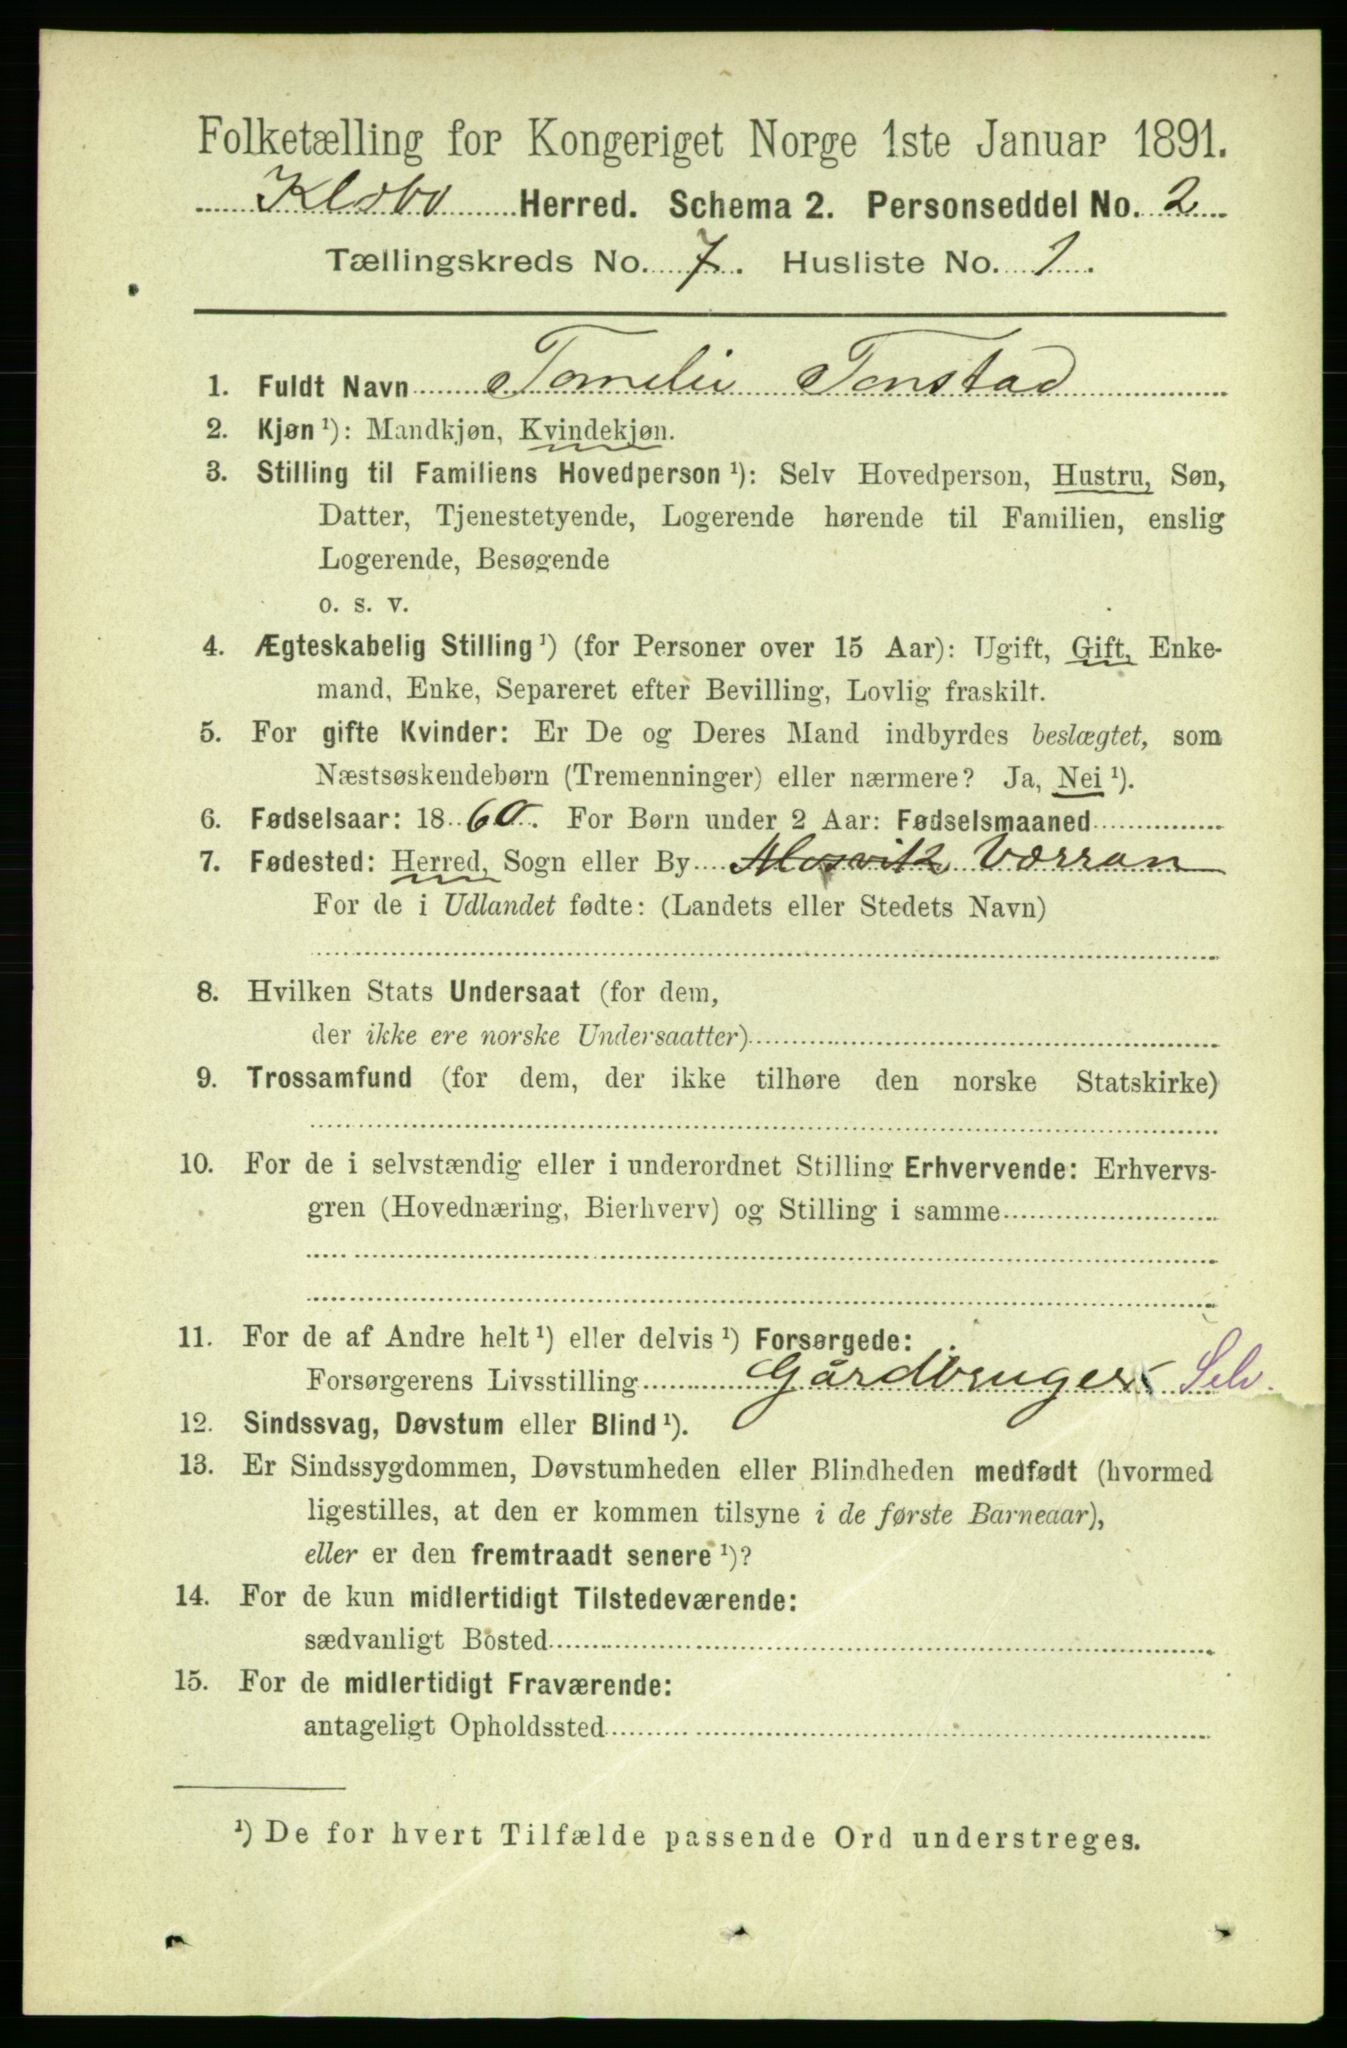 Folketælling for Kongeriget Norge 1ste Januar 1891.
Klæbo Herred. Schema 2. Personseddel No. 2
Tællingskreds No. 7. Husliste No. 1.
1. Fuldt Navn Tomelie Tonstad
2. Kjøn ¹): Mandkjøn, Kvindekjøn.
3. Stilling til Familiens Hovedperson ¹): Selv Hovedperson, Hustru, Søn,
Datter, Tjenestetyende, Logerende hørende til Familien, enslig
Logerende, Besøgende
o. s. v.
4. Ægteskabelig Stilling ¹) (for Personer over 15 Aar): Ugift, Gift, Enke-
mand, Enke, Separeret efter Bevilling, Lovlig fraskilt.
5. For gifte Kvinder: Er De og Deres Mand indbyrdes beslægtet, som
Næstsøskendebørn (Tremenninger) eller nærmere? Ja, Nei ¹).
6. Fødselsaar: 1860. For Børn under 2 Aar: Fødselsmaaned
7. Fødested: Herred, Sogn eller By Mosvik Værran
For de i Udlandet fødte: (Landets eller Stedets Navn)
8. Hvilken Stats Undersaat (for dem,
der ikke ere norske Undersaatter)
9. Trossamfund (for dem, der ikke tilhøre den norske Statskirke)
10. For de i selvstændig eller i underordnet Stilling Erhvervende: Erhvervs-
gren (Hovednæring, Bierhverv) og Stilling i samme
11. For de af Andre helt ¹) eller delvis ¹) Forsørgede:
Forsørgerens Livsstilling Gårdbruger Selv.
12. Sindssvag, Døvstum eller Blind ¹).
13. Er Sindssygdommen, Døvstumheden eller Blindheden medfødt (hvormed
ligestilles, at den er kommen tilsyne i de første Barneaar),
eller er den fremtraadt senere ¹)?
14. For de kun midlertidigt Tilstedeværende:
sædvanligt Bosted
15. For de midlertidigt Fraværende:
antageligt Opholdssted
¹) De for hvert Tilfælde passende Ord understreges.